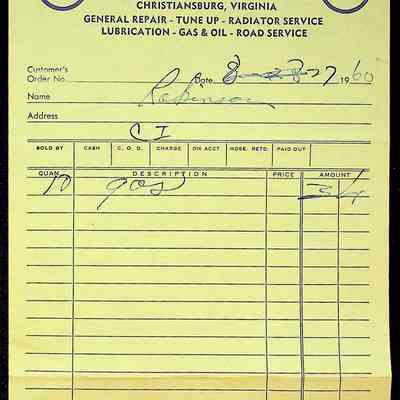 CHRISTIANSBURG, VIRGINIA
GENERAL REPAIR - TUNE UP - RADIATOR SERVICE
LUBRICATION - GAS & OIL - ROAD SERVICE
Customer's
Order No. Date 8-27 1960
Name Robinson
Address
C I
SOLD BY CASH C. O. D. CHARGE ON ACCT. MDSE. RETD. PAID OUT
QUAN. DESCRIPTION PRICE AMOUNT
10 gas